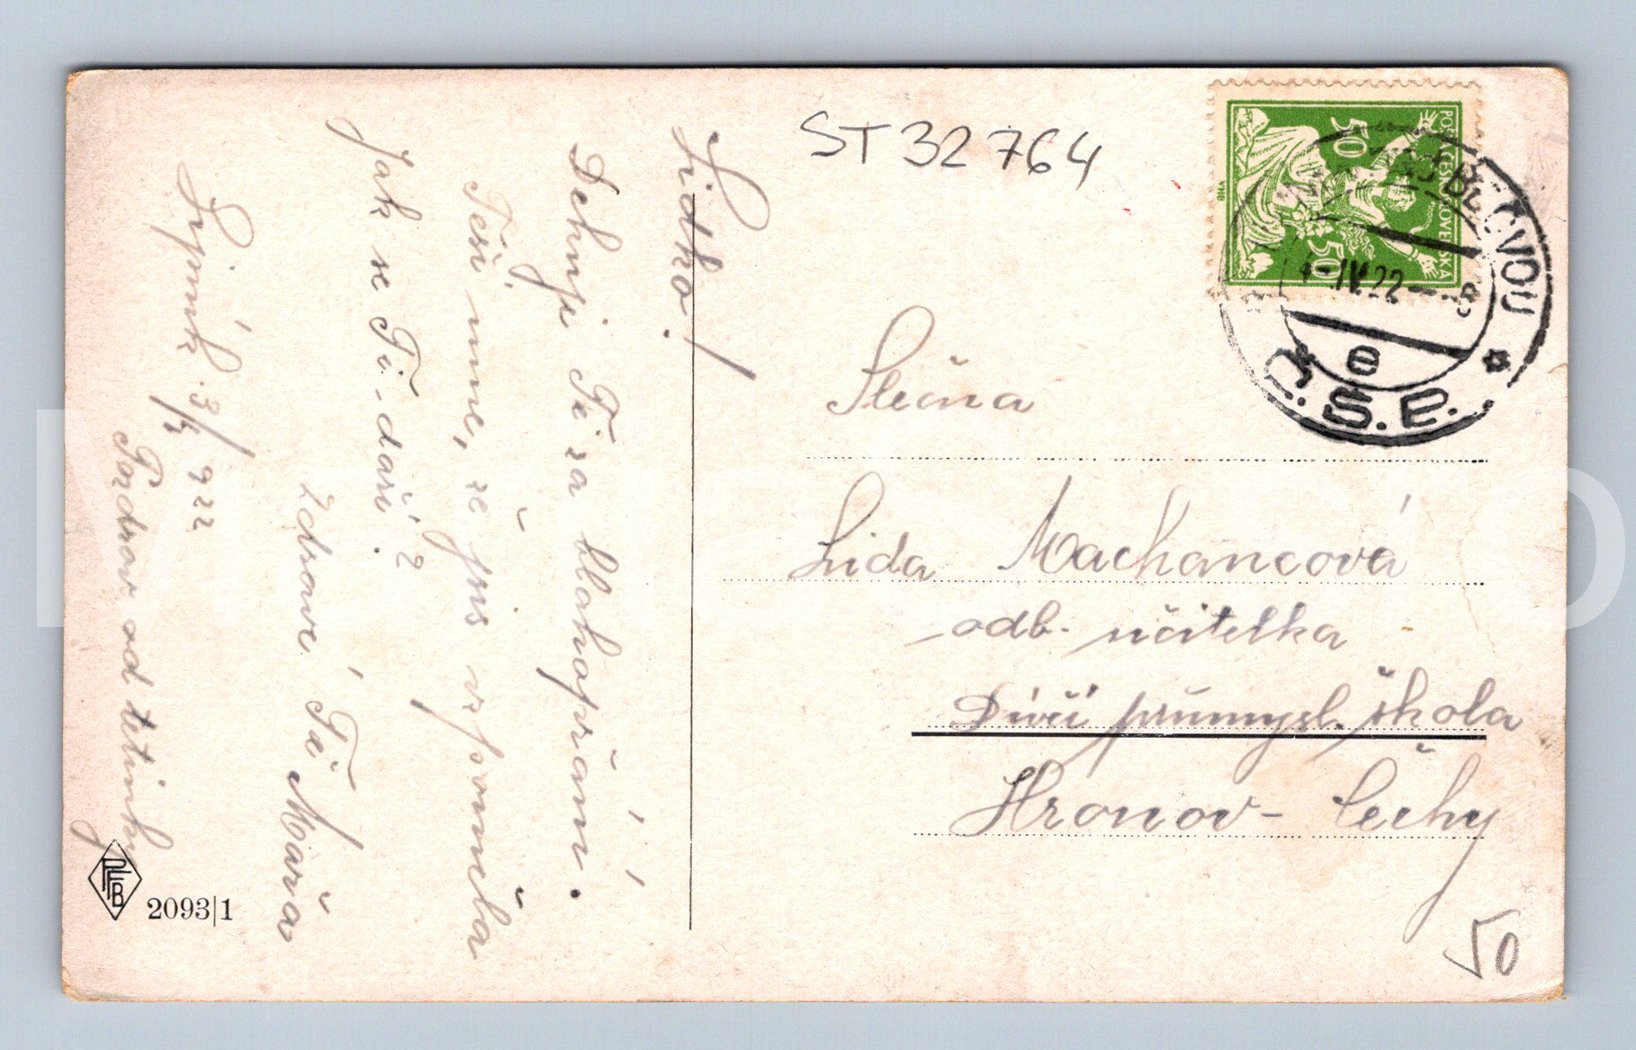 Lidko!
Děkuji Ti za blahopřání.
Těší mne, že jsi vzpoměla
Jak se Ti daří?
Zdraví Tě Mařa
Lipník 3/4 922
Pozdrav od tetinky
ST 32764
POŠTA ČESKOSLOVENSKÁ
50 50
4 IV 22 - 8
e
Č.S.P.
Slečna
Lida Machancová
odb. učitelka
Dívčí průmysl. škola
Hronov - Čechy
50
PFB
2093|1